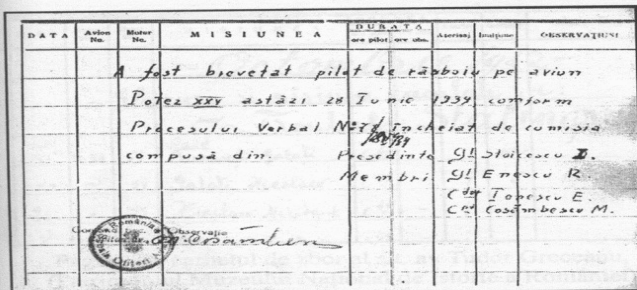 DATA Avion No. Motor No. MISIUNEA DURATA ore pilot ore obs. Aterisaj Inalțime OBSERVAȚIUNI
A fost brevetat pilot de răsboiu pe avion
Potez XXV astăzi 28 Iunie 1939 conform
Procesului Verbal No. încheiat de comisia
compusă din Președinte Gl Stoicescu I.
Membri Gl Enescu R.
Cdor Ionescu E.
Cnt Cosâmbescu M.
Observație
România